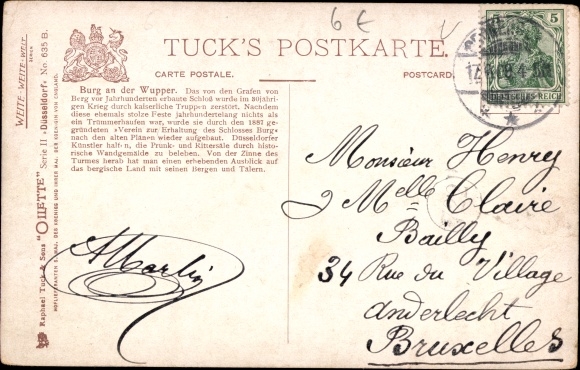 6 €
TUCK'S POSTKARTE.
CARTE POSTALE.
POSTCARD.
Burg an der Wupper. Das von den Grafen von
Berg vor Jahrhunderten erbaute Schloß wurde im 30jähri-
gen Krieg durch kaiserliche Truppen zerstört. Nachdem
diese ehemals stolze Feste jahrhundertelang nichts als
ein Trümmerhaufen war, wurde sie durch den 1887 ge-
gründeten »Verein zur Erhaltung des Schlosses Burg«
nach den alten Plänen wieder aufgebaut. Düsseldorfer
Künstler halfen, die Prunk- und Rittersäle durch histori-
sche Wandgemälde zu beleben. Von der Zinne des
Turmes herab hat man einen erhebenden Ausblick auf
das bergische Land mit seinen Bergen und Tälern.
WEITE-WEITE-WELT
SERIEN
Raphael Tuck & Sons "OILETTE" Serie II »Düsseldorf« No. 635 B.
5
DEUTSCHES REICH
Monsieur Henry
& Melle Claire
Bailly
34 Rue du Village
anderlecht
Bruxelles
AMartin